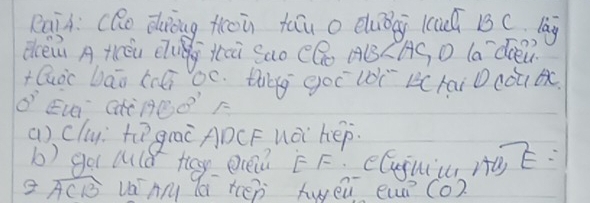 Bài 4: Cho đường tròn tâm O đường kính BC. lấy
điểm A trên đường tròn sao cho AB<AC, D là điểm
thuộc bán kính OC. đường góc với BC tại D cắt AC
ở E và cắt AB ở F.
a) C/m: tứ giác ADCF nội tiếp.
b) gọi M là trung điểm EF. chứng minh AME =
2 ACB và AM là tiếp tuyến của (O)